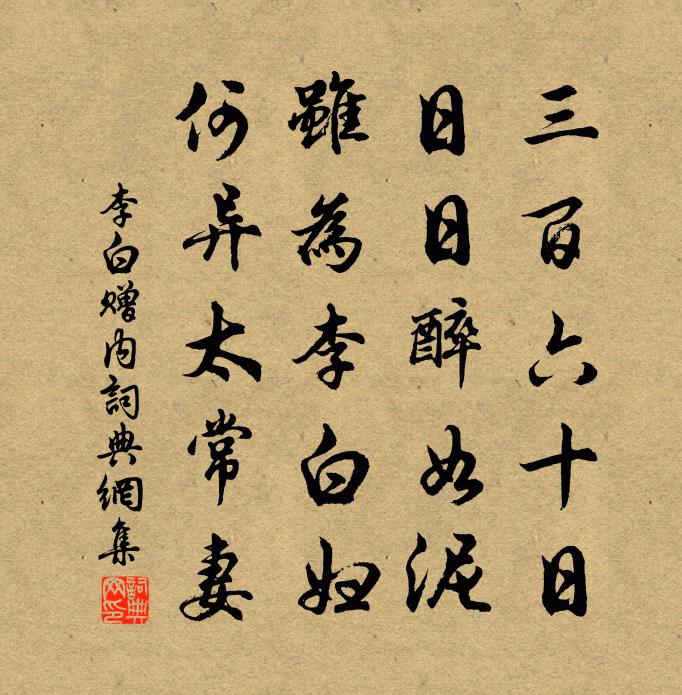 三百六十日
日日醉如泥
雖為李白婦
何异太常妻
李白贈内詞典網集
詞典網印